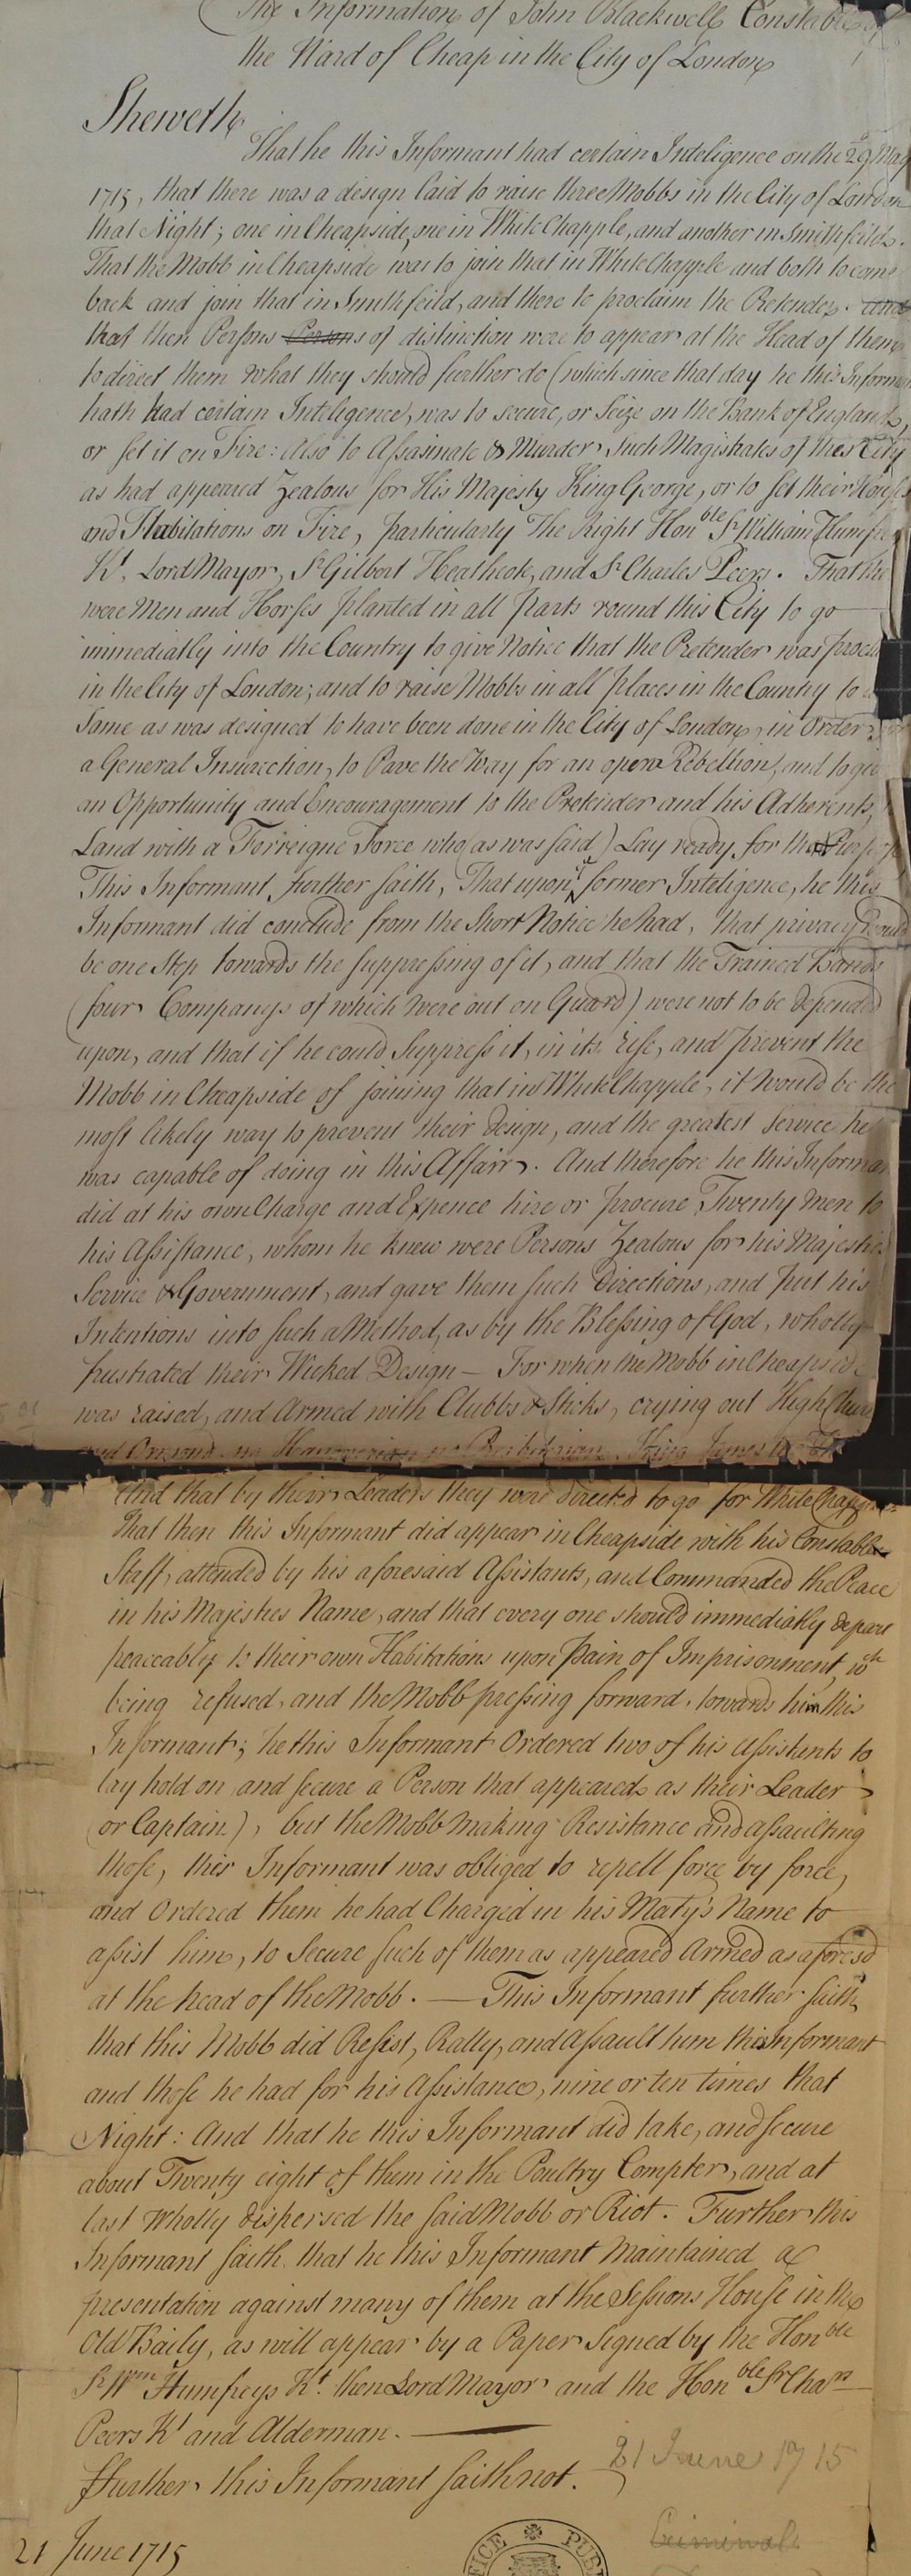 The Information of John Blackwell Constable of
the Ward of Cheap in the City of London
Sheweth
That he this Informant had certain Inteligence on the 29 May
1715, that there was a design laid to raise three Mobbs in the City of London
that Night; one in Cheapside, one in White Chapple, and another in Smithfeild.
That the Mobb in Cheapside was to join that in White Chapple and both to come
back and join that in Smithfeild, and there to proclaim the Pretender. and
that then Persons Persons of distinction were to appear at the Head of them
to direct them what they should further do (which since that day he this Informan
hath had certain Inteligence, was to secure, or Seize on the Bank of England,
or set it on Fire: Also to Assasinate & Murder such Magistrates of this City
as had appeared Zealous for His Majesty King George, or to set their Houses
and Habitations on Fire, particularly The Right Honble Sr William Humfre
Kt. Lord Mayor, Sr Gilbert Heathcok, and Sr Charles Peers. That
were Men and Horses planted in all parts round this City to go
immediatly into the Country to give Notice that the Pretender was procla
in the City of London; and to raise Mobbs in all places in the Country to
Same as was designed to have been done in the City of London, in Order
a General Insurrection, to Pave the Way for an open Rebellion, and to giv
an Opportunity and Encouragement to the Pretender and his Adherents,
Land with a Forreigne Force who (as was said) Lay ready for that Purpose
This Informant further saith, That upon ye former Inteligence, he this
Informant did conclude from the Short Notice he had, that privacy would
be one Step towards the suppressing of it, and that the Trained Bands
(four Companys of which were out on Guard) were not to be depended
upon, and that if he could Suppress it, in its rise, and prevent the
Mobb in Cheapside of joining that in White Chapple, it would be the
most likely way to prevent their design, and the greatest service he
was capable of doing in this Affair. And therefore he this Informan
did at his own Charge and Expence hire or procure Twenty Men to
his Assistance, whom he knew were Persons Zealous for his Majesties
Service & Government, and gave them such Directions, and put his
Intentions into such a Method, as by the Blessing of God, wholly
frustrated their Wicked Design – For when the Mobb in Cheapside
was raised, and Armed with Clubbs & Sticks, crying out High Church
and Ormond no Hanoverian no Presbiterian King James the
And that by their Leaders they were directed to go for White Chapple.
That then this Informant did appear in Cheapside with his Constables
Staff, attended by his aforesaid Assistants, and Commanded the Peace
in his Majesties Name, and that every one should immediatly depart
peaceably to their own Habitations upon Pain of Imprisonment, wch
being refused, and the Mobb pressing forward, towards him this
Informant; he this Informant Ordered two of his Assistants to
lay hold on and secure a Person that appeared as their Leader
(or Captain), but the Mobb making Resistance and assaulting
those, this Informant was obliged to repell force by force,
and Ordered them he had Charged in his Matys Name to
assist him, to Secure such of them as appeared Armed as aforesd
at the head of the Mobb. — This Informant further saith
that this Mobb did Resist, Rally, and Assault him this Informant
and those he had for his Assistance, nine or ten times that
Night: And that he this Informant did take, and secure
about Twenty eight of them in the Poultry Compter, and at
last wholly dispersed the said Mobb or Riot. Further this
Informant saith that he this Informant Maintained a
presentation against many of them at the Sessions House in the
Old Baily, as will appear by a Paper Signed by the Honble
Sr Wm Humfreys Kt. then Lord Mayor and the Honble Sr Chars
Peers Kt and Alderman. —
ffurther this Informant saith not.
21 June 1715
Criminal
21 June 1715